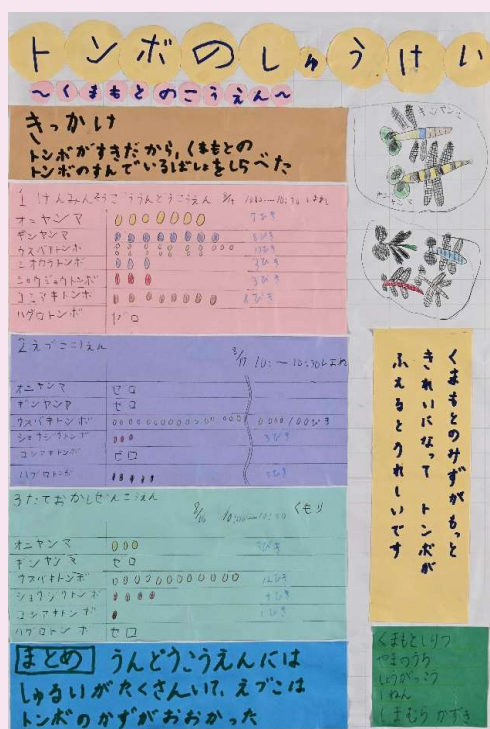 トンボのしゅうけい
～くまもとのこうえん～
きっかけ
トンボがすきだから、くまもとの
トンボのすんでいるばしょをしらべた
ギンヤンマ
1 けんみんそうごううんどうこうえん
オニヤンマ 7ひき
ギンヤンマ 8ひき
ウスバキトンボ
シオカラトンボ 3びき
ショウジョウトンボ 3びき
コシアキトンボ 8ひき
ハグロトンボ ゼロ
2えづこうえん
オニヤンマ ゼロ
ギンヤンマ ゼロ
ウスバキトンボ 100ぴき
ショウジョウトンボ 3びき
コシアキトンボ ゼロ
ハグロトンボ
3たておかしぜんこうえん
8/16 10:00～10:30 くもり
オニヤンマ 3びき
ギンヤンマ ゼロ
ウスバキトンボ 12ひき
ショウジョウトンボ 4ひき
コシアキトンボ 1ぴき
ハグロトンボ ゼロ
まとめ うんどうこうえんには
しゅるいがたくさんいて、えづこは
トンボのかずがおおかった
くまもとのみずがもっと
きれいになって トンボが
ふえるとうれしいです
くまもとしりつ
やまのうち
しょうがっこう
1ねん
しまむら かずき